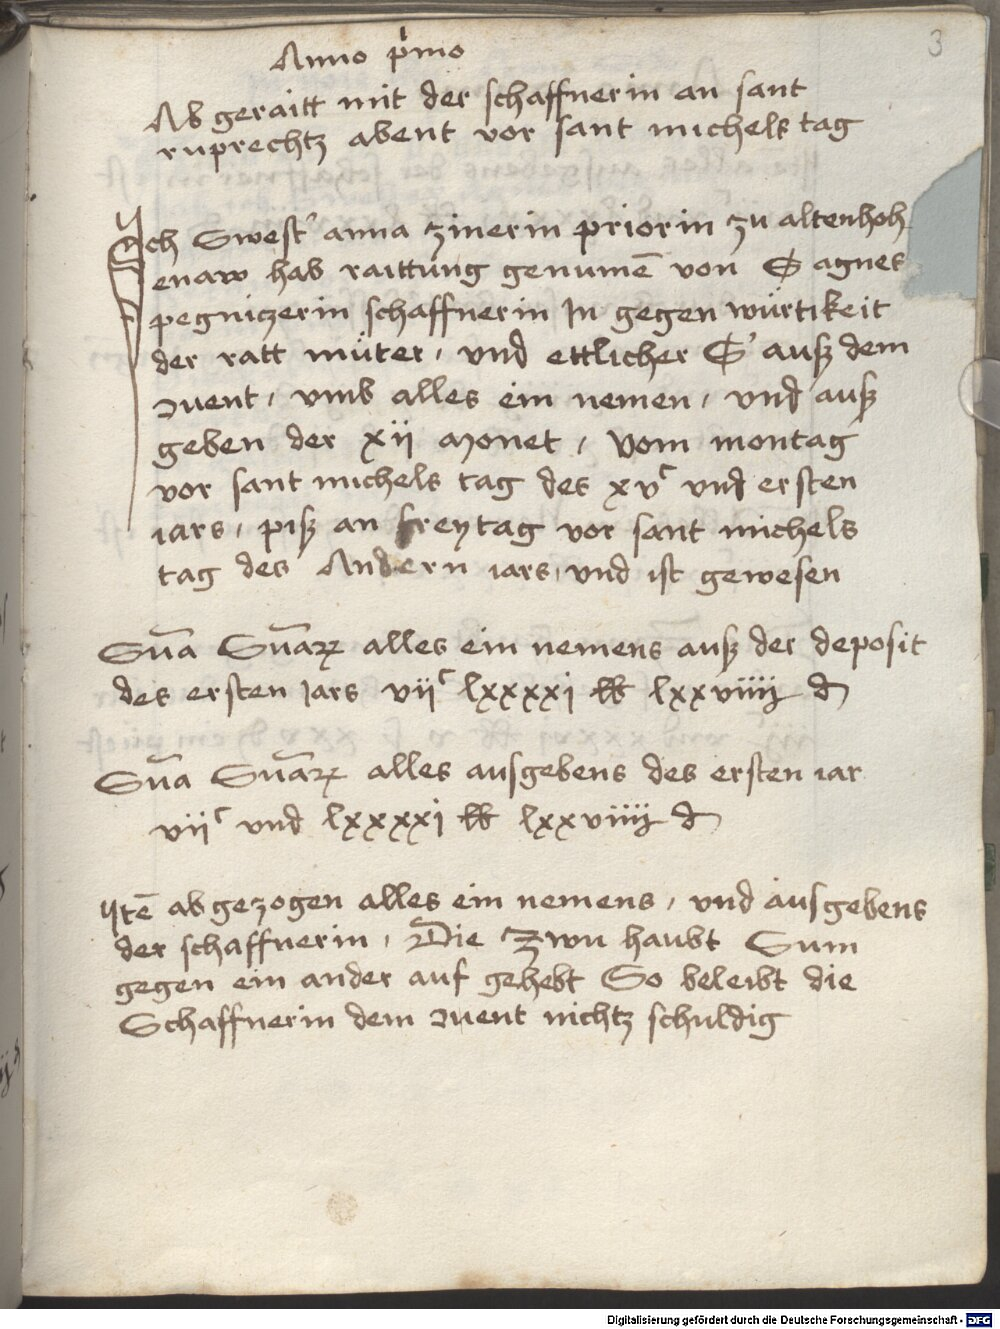 3
Anno p̓mo
Abgeraitt mit der schaffnerin an sant
ruprechtz abent vor sant michels tag
Ich Swest᾿ anna zinerin priorin zu altenhoh
enaw hab raittung genumē von S agnes
pegniczerin schaffnerin In gegen würtikeit
der ratt müter, vnd ettlicher S᾿ ausz dem
ꝯuent, vmb alles ein nemen, vnd ausz
geben der xij Monet, vom montag
vor sant michels tag des xvᶜ vnd ersten
iars, pisz an freytag vor sant michels
tag des Andern iars, vnd ist gewesen
Sūa Sūaꝝ alles ein nemens ausz der deposit
des ersten Jars vijᶜ lxxxxj ℔ lxxviiij ₰
Sūa Sūaꝝ alles ausgebens des ersten iar
vijᶜ vnd lxxxxj ℔ lxxviiij ₰
Itē abgezogen alles ein nemens, vnd ausgebens
der schaffnerin, Die Zwu haubt Sum
gegen ein ander auf gehebt So beleibt die
Schaffnerin dem ꝯuent nichtz schuldig
Digitalisierung gefördert durch die Deutsche Forschungsgemeinschaft - DFG